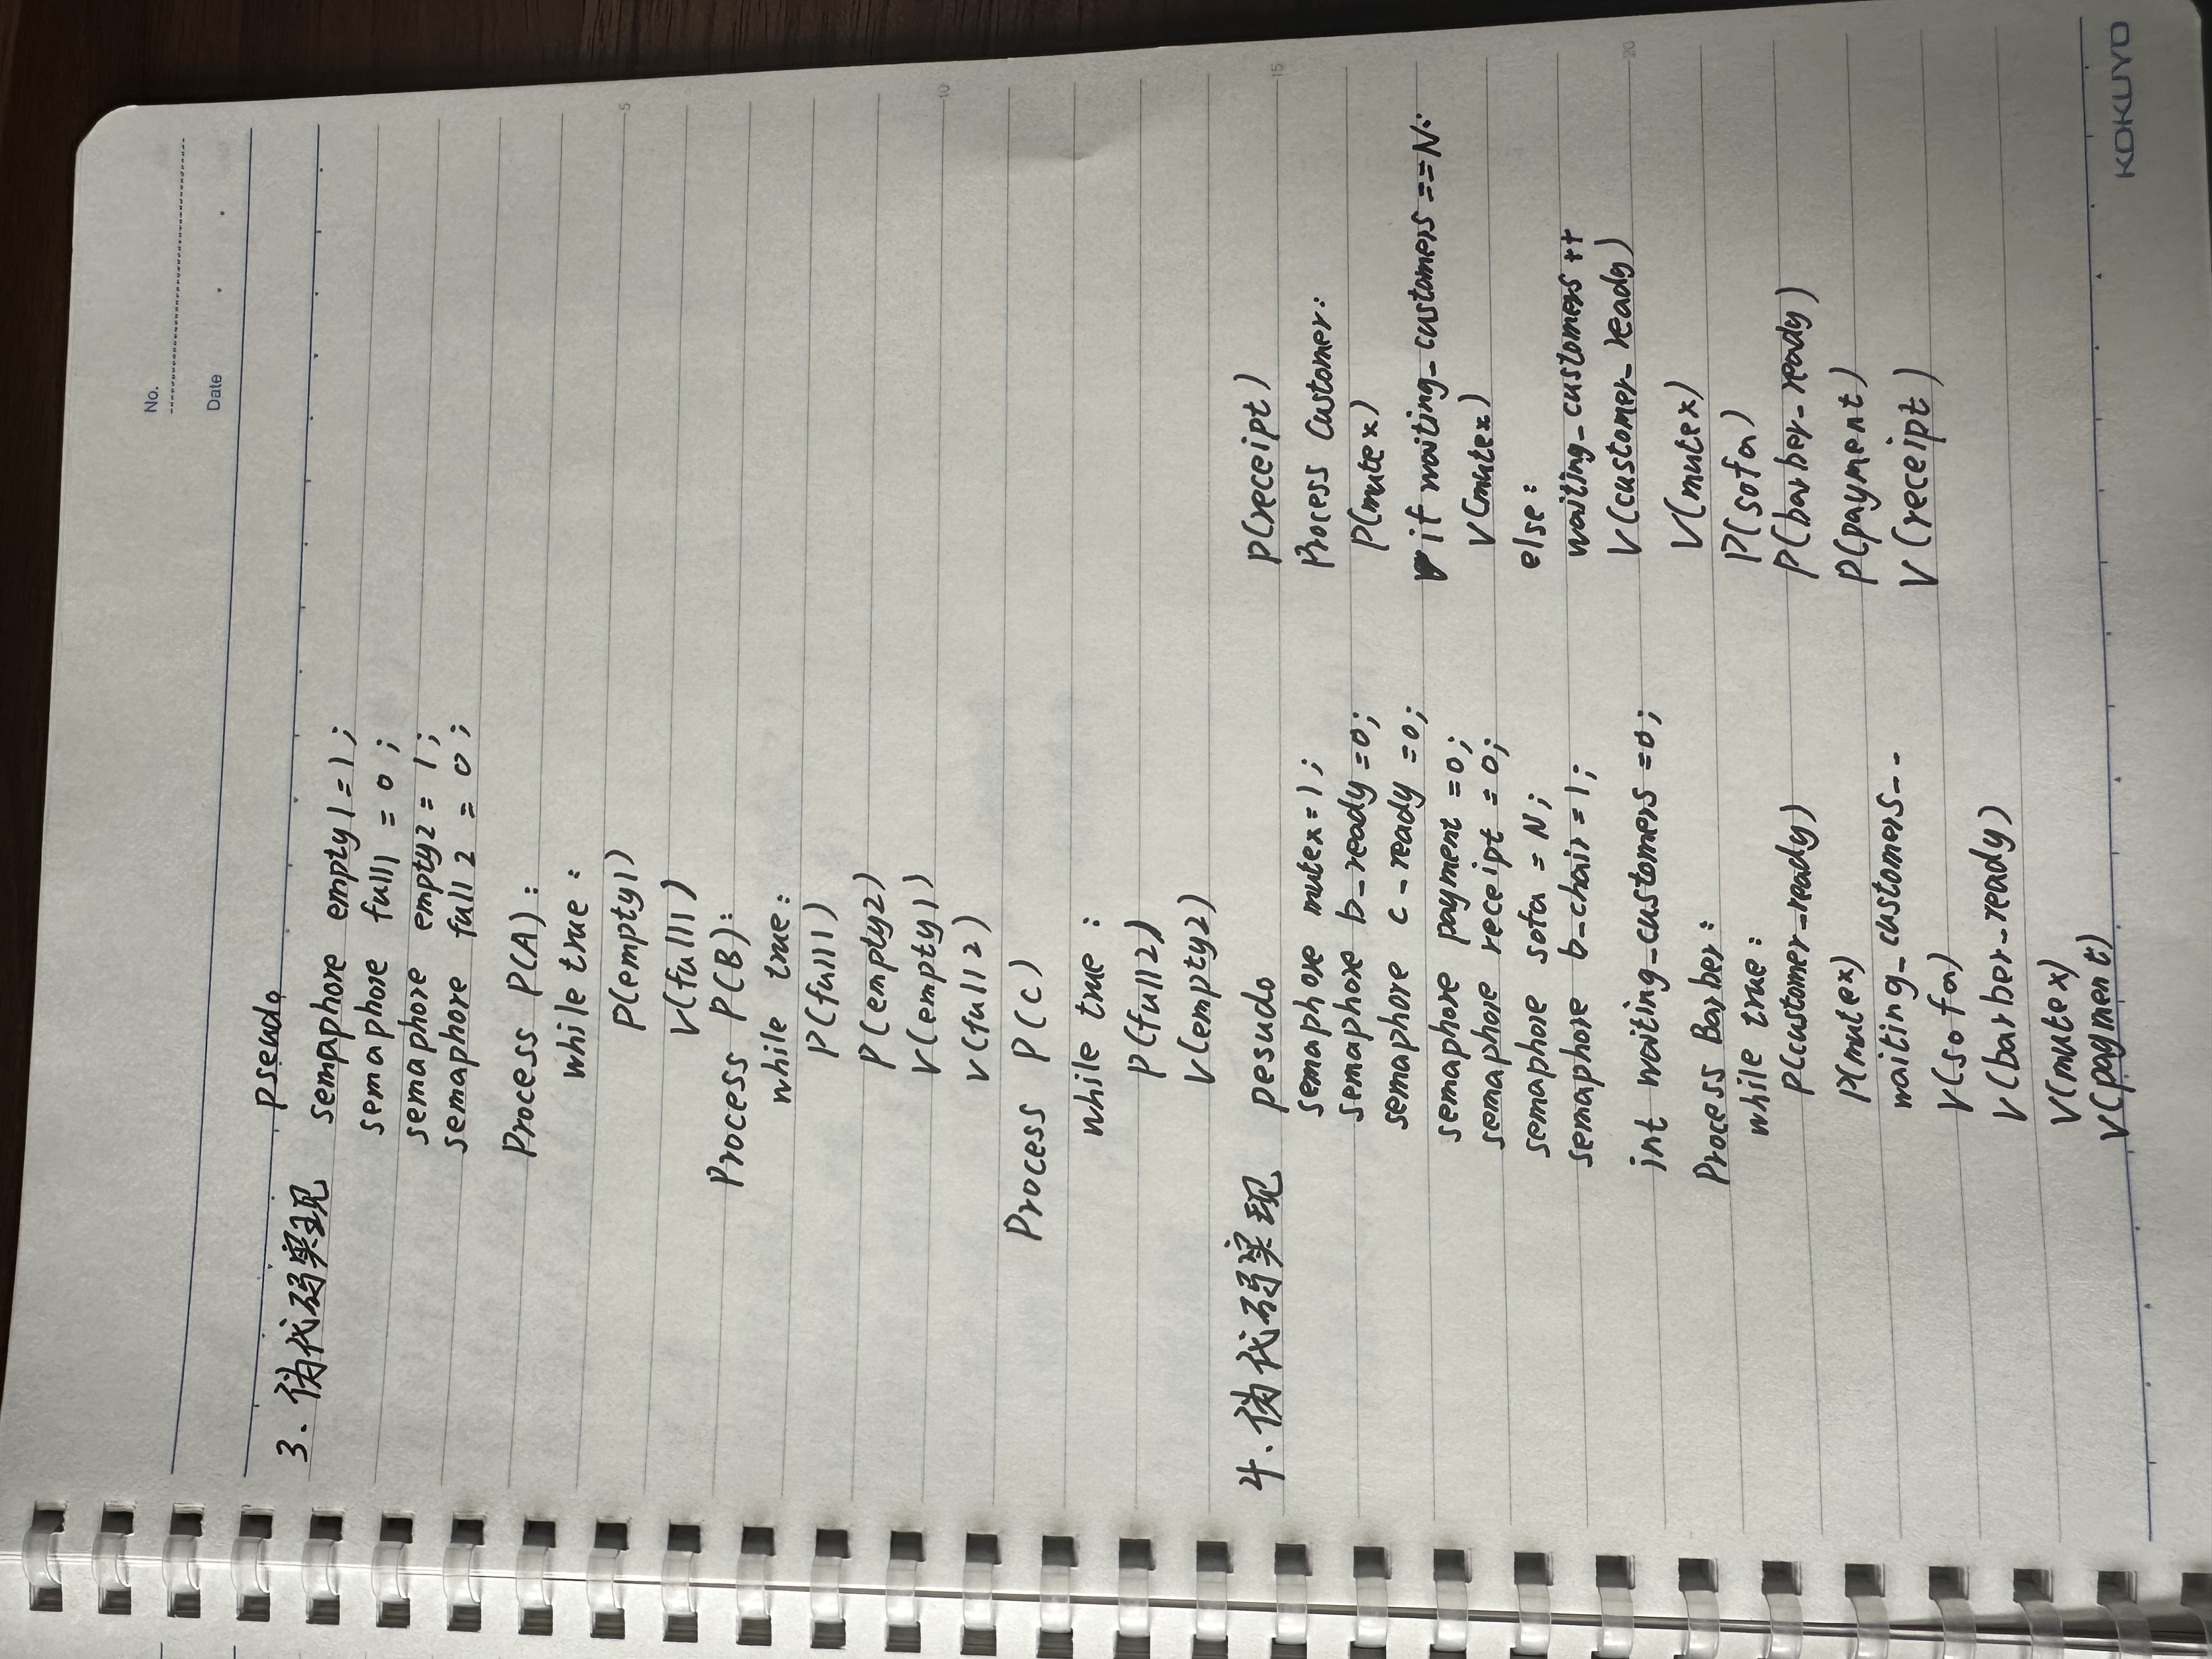 No.
Date
3. 伪代码实现 pseudo
semaphore empty1 = 1;
semaphore full1 = 0;
semaphore empty2 = 1;
semaphore full2 = 0;
Process P(A):
while true:
P(empty1)
V(full1)
Process P(B):
while true:
P(full1)
P(empty2)
V(empty1)
V(full2)
Process P(C)
while true:
P(full2)
V(empty2)
4. 伪代码实现 pesudo
semaphore mutex=1;
semaphore b_ready=0;
semaphore c_ready=0;
semaphore payment=0;
semaphore receipt=0;
semaphore sofa=N;
semaphore b_chair=1;
int waiting_customers=0;
Process Barber:
while true:
P(customer_ready)
P(mutex)
waiting_customers--
V(sofa)
V(barber_ready)
V(mutex)
V(payment)
P(receipt)
Process Customer:
P(mutex)
if waiting_customers==N:
V(mutex)
else:
waiting_customers++
V(customer_ready)
V(mutex)
P(sofa)
P(barber_ready)
P(payment)
V(receipt)
5
10
15
20
KOKUYO